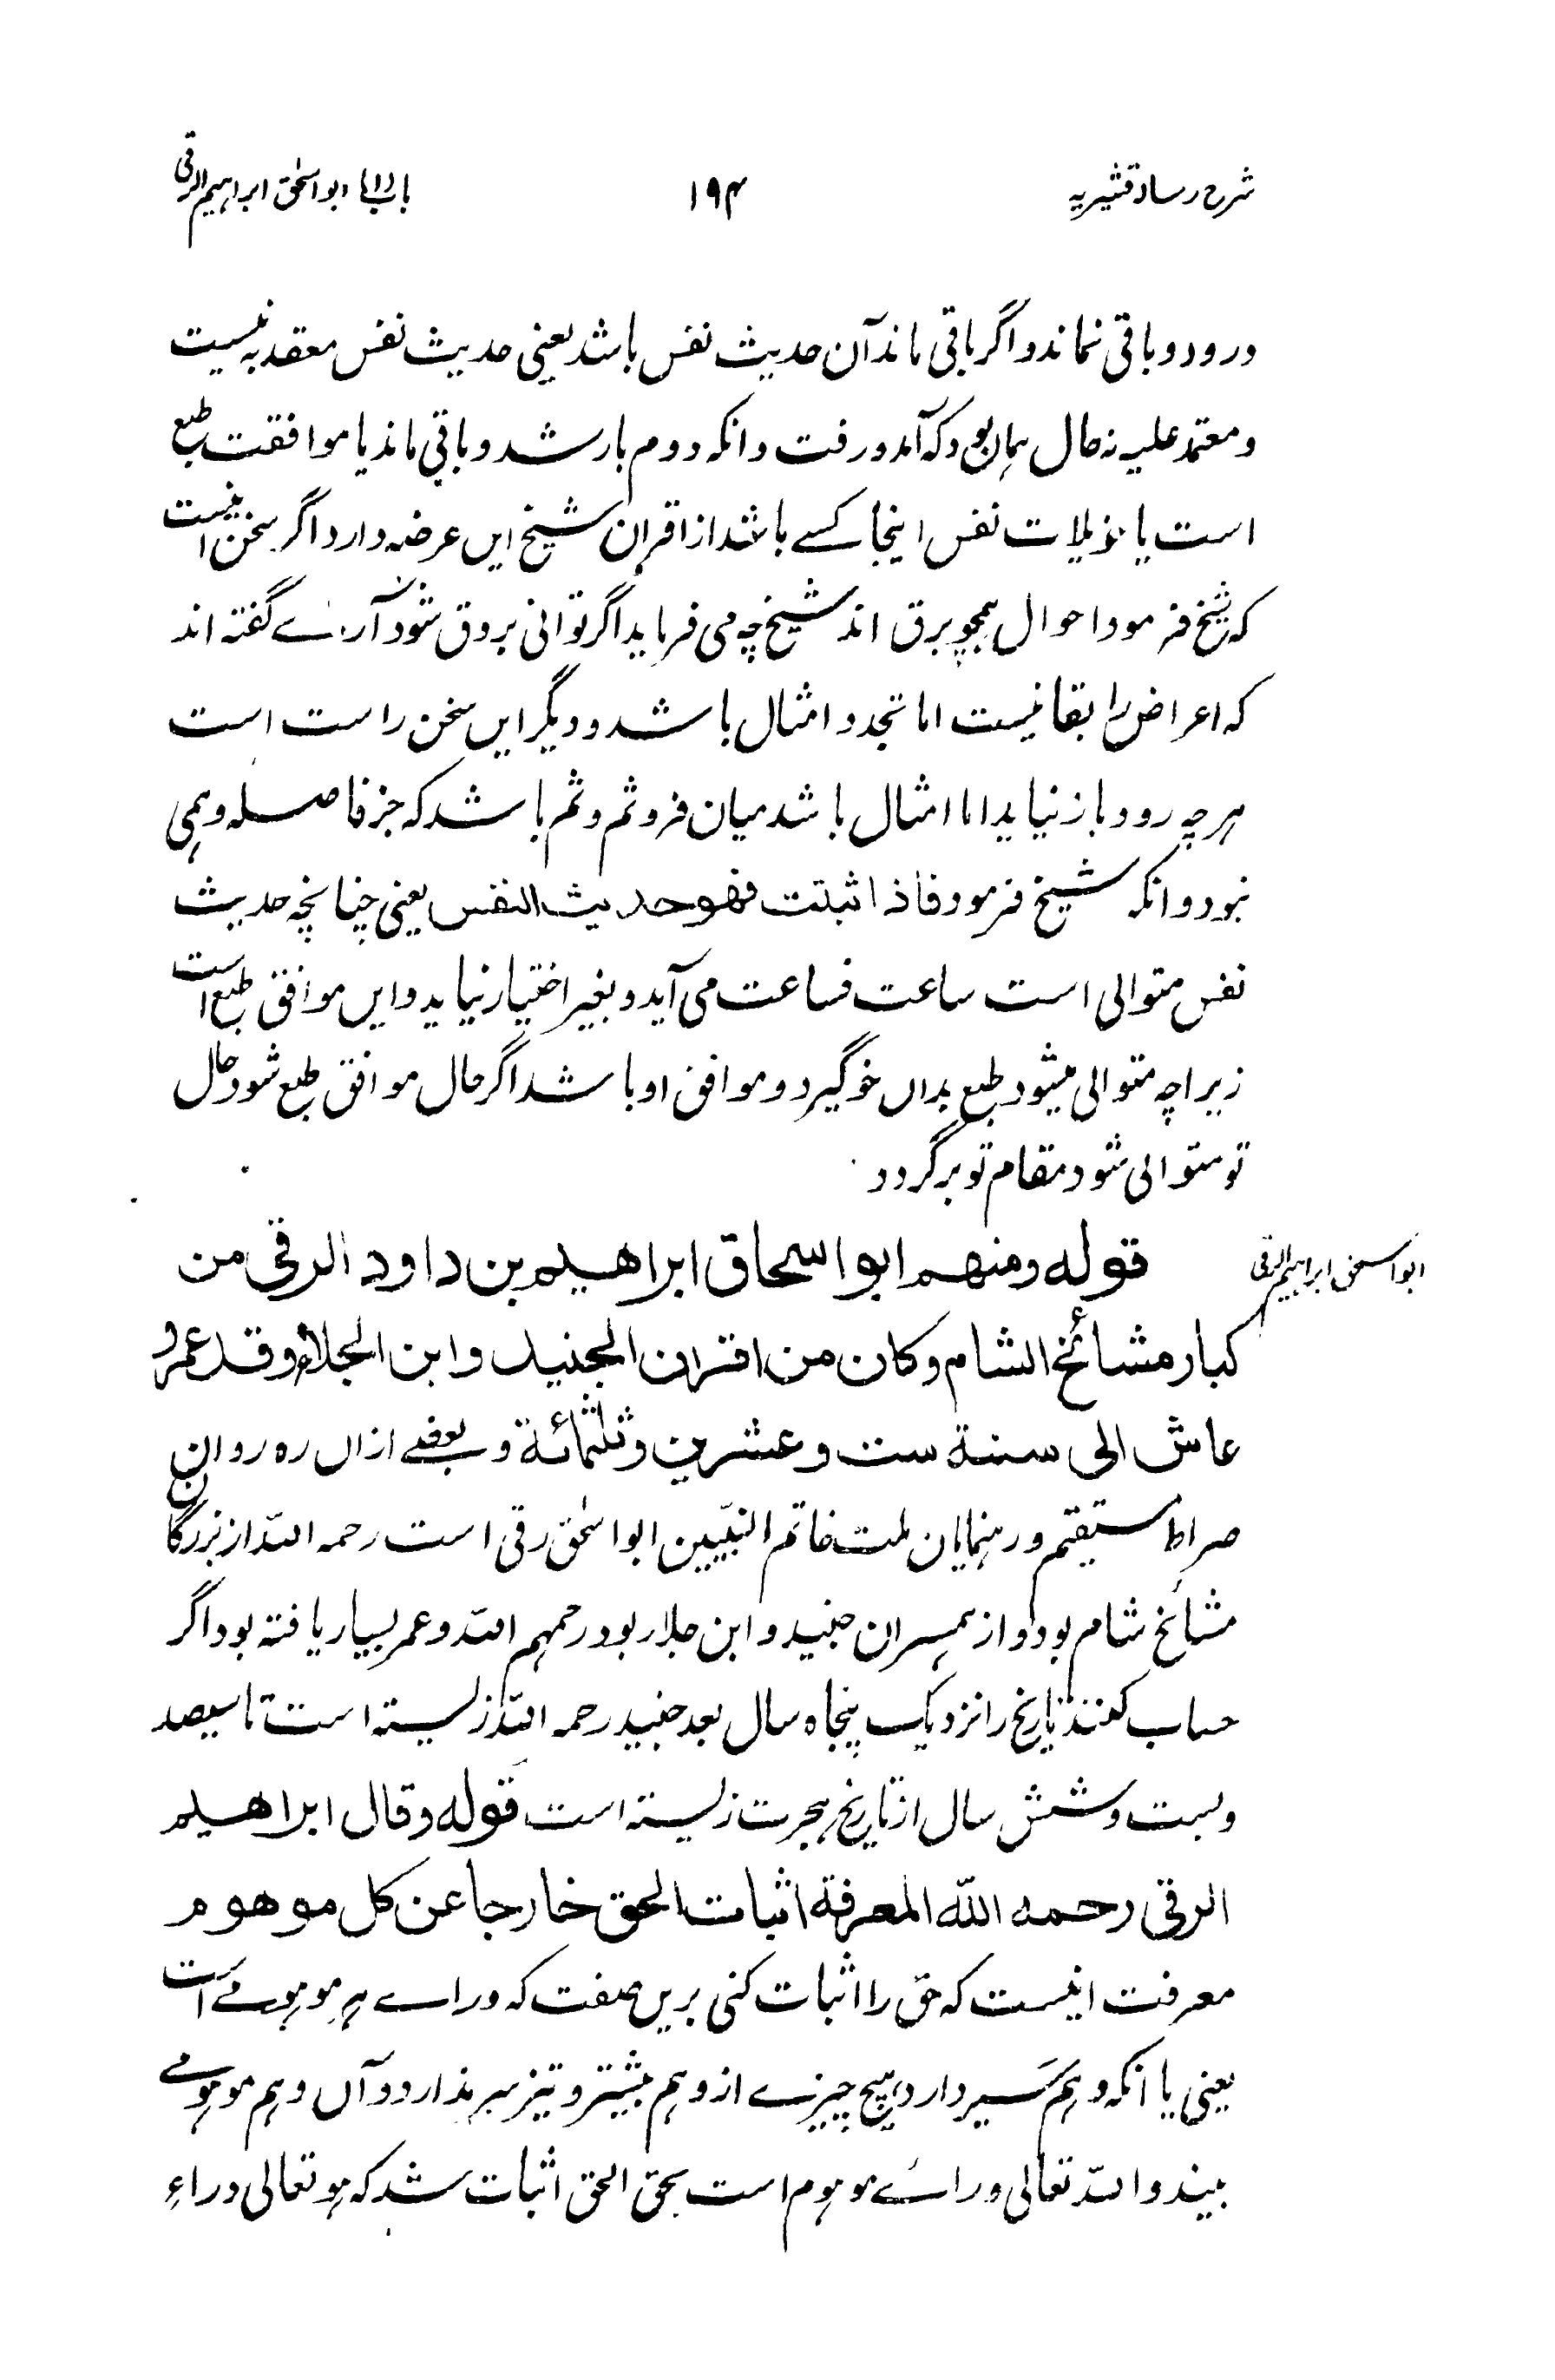 شرح رسالہ قشیریہ
۱۹۴
باب ابو اسحٰق ابراہیم الرقی
در رود و باقی نماند و اگر باقی ماند آن حدیث نفس باشد یعنی حدیث نفس معتد بہ نیست
و معتمد علیہ نہ حال ہمان بود کہ آمد و رفت و انکہ دوم بار شد و باقی ماند یا موافقت طبع
است یا نفس اینجا کسے باشد از اقران شیخ ایں عرضہ دارد اگر سخن اینست
کہ شیخ فرمود احوال ہمچو برق اند شیخ چہ می فرماید اگر توانی بروق شود آرے گفتہ اند
کہ اعراض را بقا نیست اما تجدد امثال باشد و دیگر ایں سخن راست است
ہر چہ رود باز نیاید اما امثال باشد میان و ثم و ثم باشد کہ جز فاصلہ وہمی
نبود و انکہ شیخ فرمود فاذا اثبتت فهو حدیث النفس یعنی چنانچہ حدیث
نفس متوالی است ساعت فساعت می آید و بغیر اختیار نیاید و ایں موافق طبع است
زیراچہ متوالی میشود طبع بداں خو گیرد و موافق او باشد اگر حال موافق طبع شود حال
تو متوالی شود مقام تو برگردد
ابو اسحٰق ابراہیم الرقی
قوله ومنهم ابو اسحاق ابراهیم بن داود الرقی من
کبار مشائخ الشام و کان من اقران الجنید و ابن الجلاء وقد عمر و
عاش الی سنة ست و عشرین و ثلثمائة و بعضے ازاں رہ روان
صراط مستقیم و رہنمایان ملت خاتم النبیین ابو اسحٰق رقی است رحمہ اللہ از بزرگان
مشائخ شام بود و از ہمسران جنید و ابن جلاء بود رحمہم اللہ و عمر بسیار یافتہ بود اگر
حساب کنند تاریخ را نزدیک پنجاہ سال بعد جنید رحمہ اللہ زیستہ است تا سیصد
و بست و شش سال از تاریخ ہجرت زیستہ است قوله وقال ابراهیم
الرقی رحمه الله المعرفة اثبات الحق خارجا عن کل موهوم
معرفت اینست کہ حق را اثبات کنی بریں صفت کہ وراے ہر موہومے است
یعنی با انکہ وہم سیر دارد ہیچ چیزے از وہم بیشتر و تیز سیر ندارد و آں وہم موہومے
بیند و اللہ تعالی وراے موہوم است بحق الحق اثبات شد کہ ہو تعالی وراء